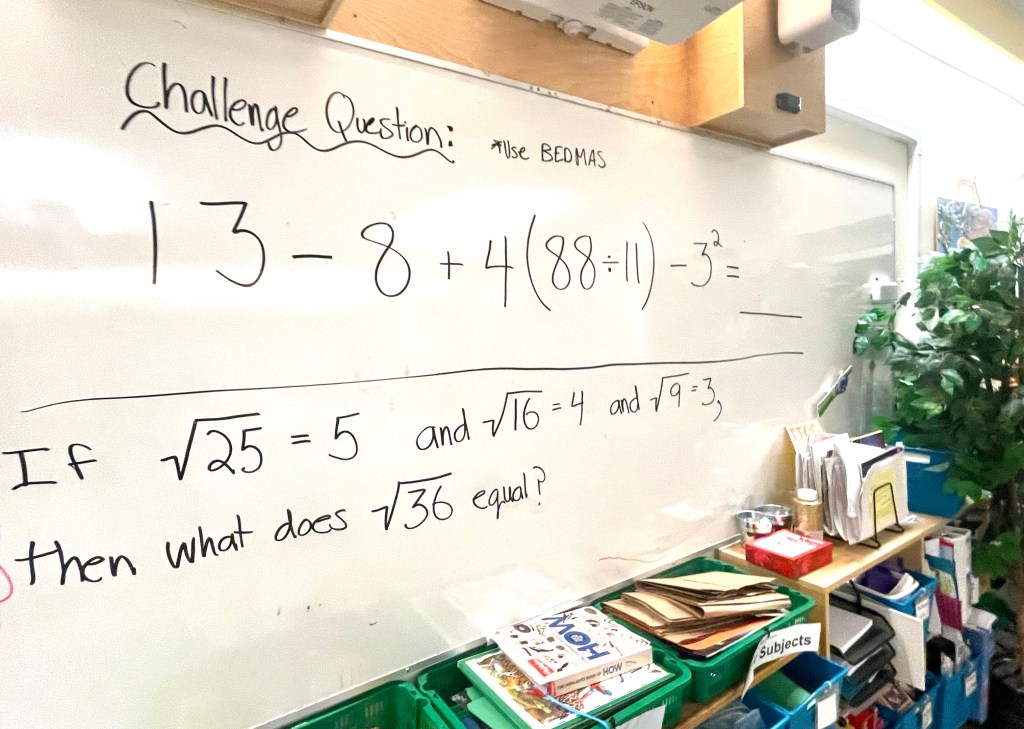 EPSON
Challenge Question:
*Use BEDMAS
13 - 8 + 4(88÷11) - 3² = __
If √25 = 5 and √16 = 4 and √9 = 3,
then what does √36 equal?
HOW
HOW
Subjects